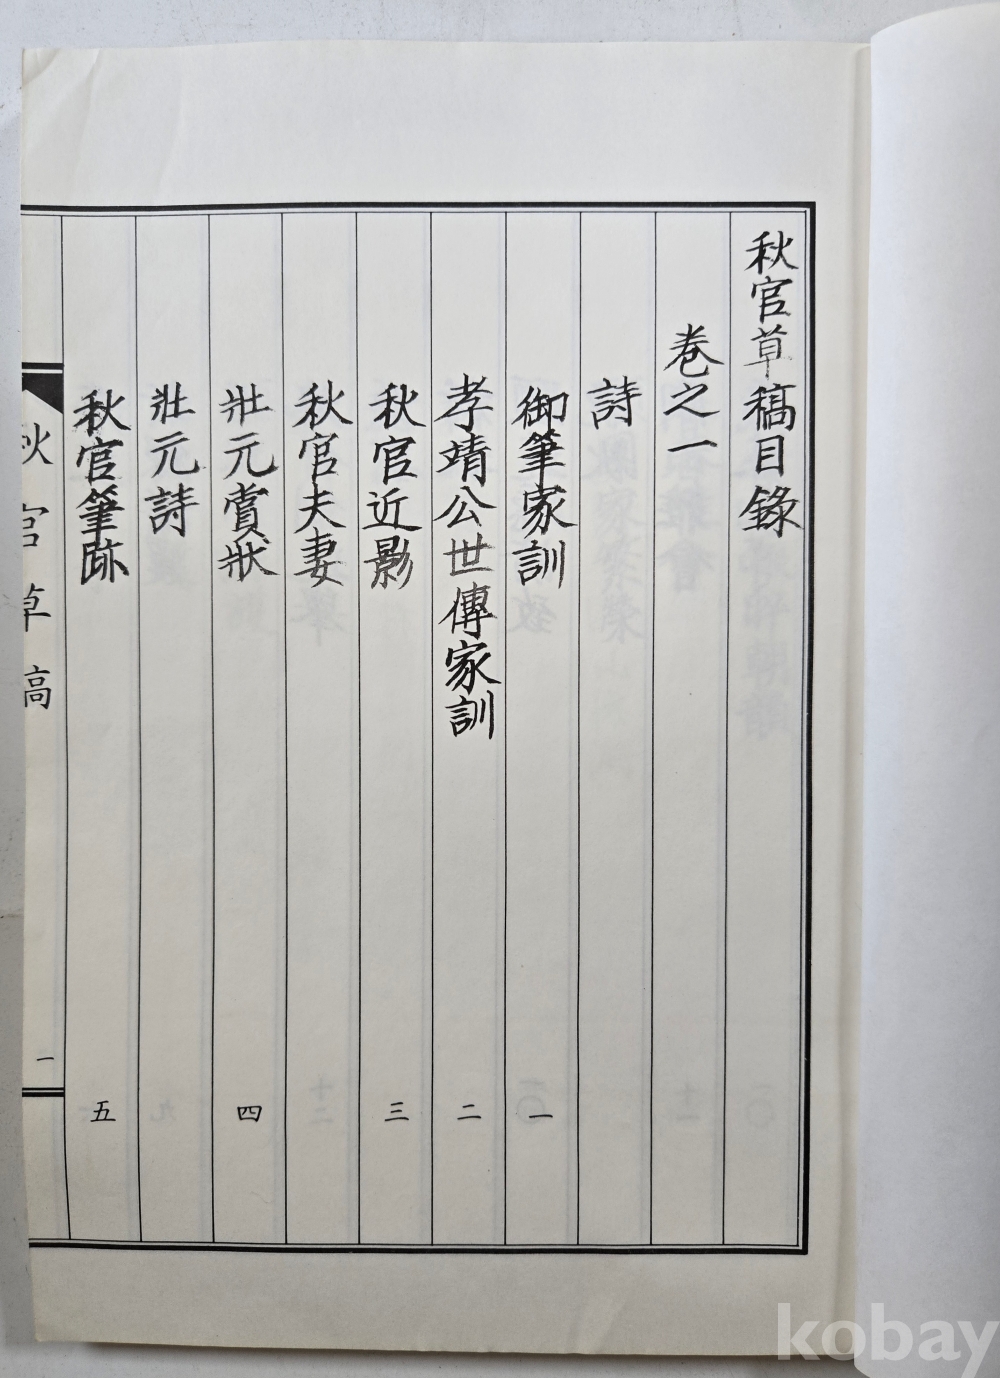 秋官草稿目錄
卷之一
詩
御筆家訓 一
孝靖公世傳家訓 二
秋官近影 三
秋官夫妻
壯元賞狀 四
壯元詩
秋官筆跡 五
秋官草稿 一
kobay